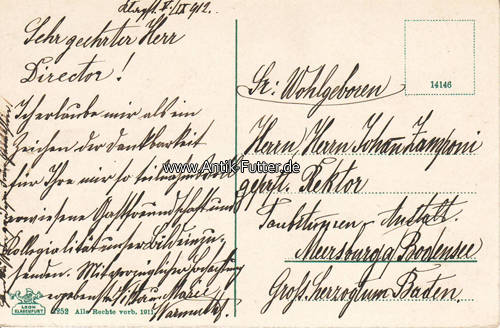 Klagft. V/IX 912.
Sehr geehrter Herr
Director!
Ich erlaube mir als ein
Zeichen der Dankbarkeit
für Ihre mir so teilnahmsvoll
erwiesene Gastfreundschaft und
Kollegialität unser Bild einzu-
senden. Mit vorzüglicher Hochachtung
ergebenst
Marie
Sr: Wohlgeboren
Herrn Herrn Johann Zamponi
Rektor
Taubstummen Anstalt.
Meersburg a/Bodensee
Grossherzogtum Baden.
14146
www.Antik-Futter.de
LEON
KLAGENFURT
Alle Rechte vorb. 1911